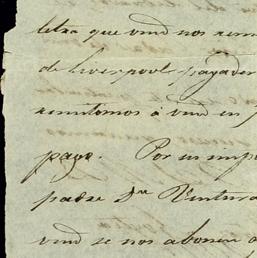 letra que vmd nos remi
de Liverpool pagader
remitimos à vmd en
pago. Por su imp
padre Dn Ventura
vmd se nos abonen